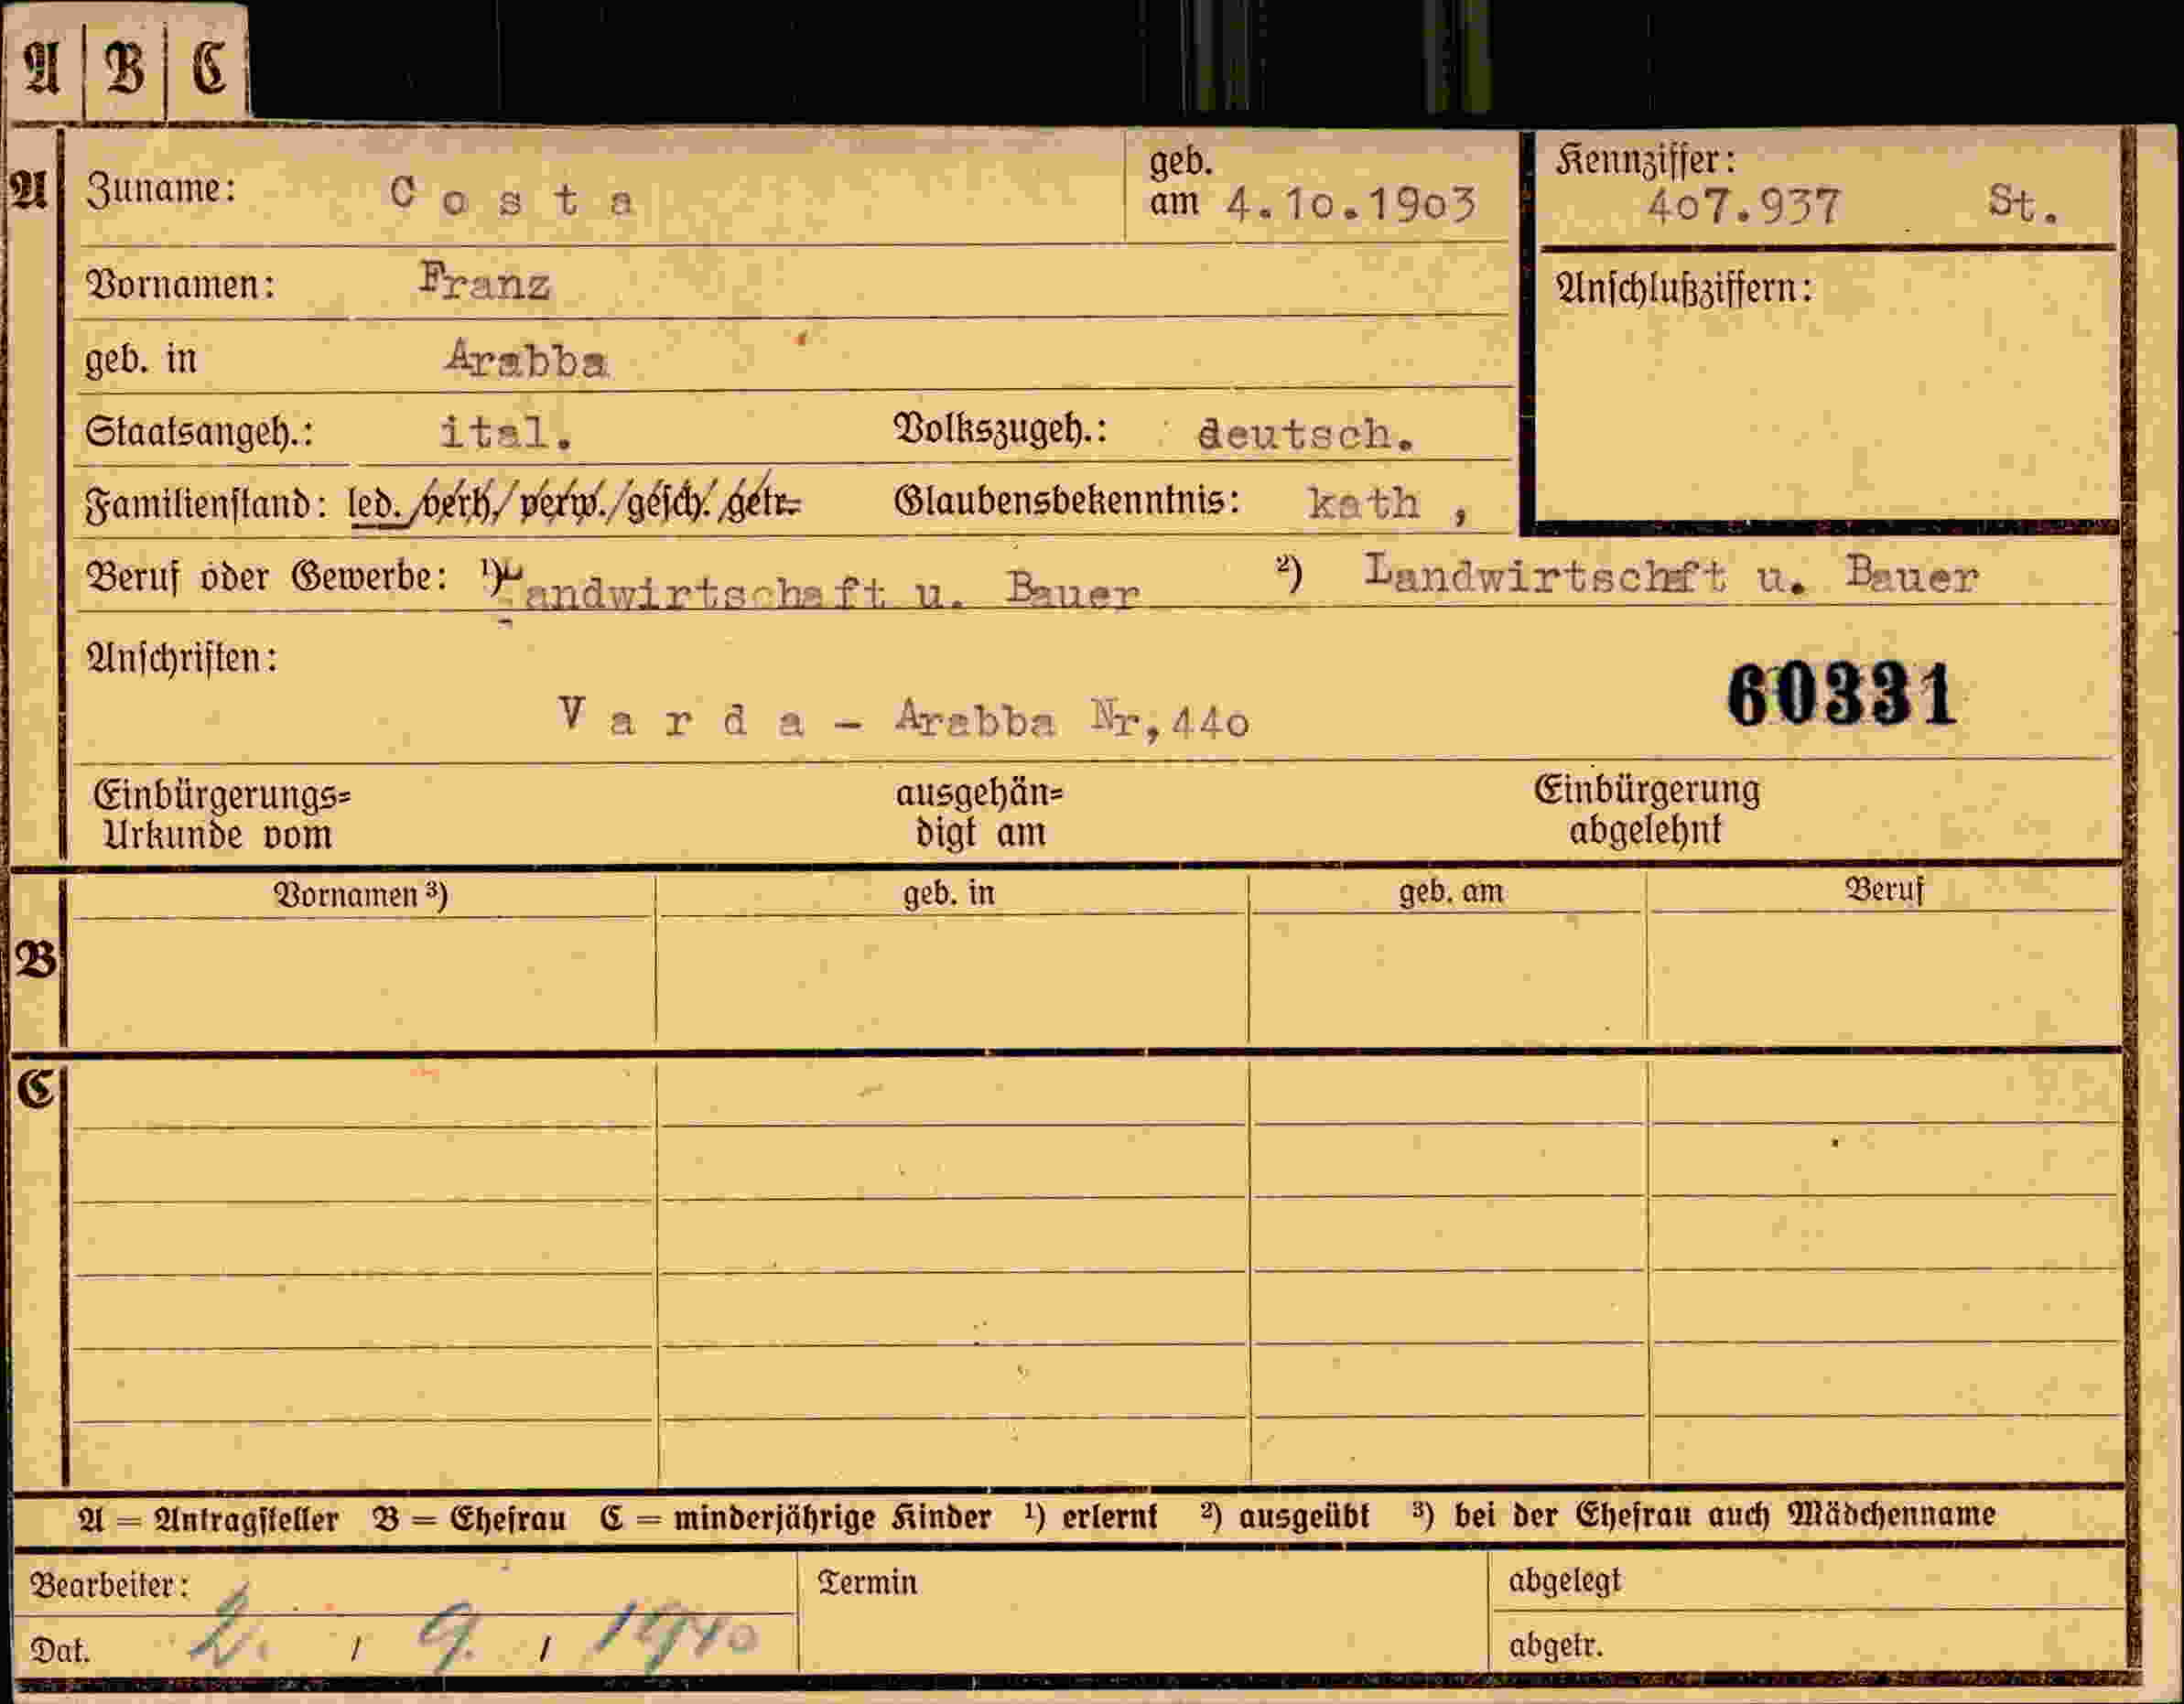 A B C
A Zuname: Costa geb. am 4.10.1903 Kennziffer: 407.937 St.
Vornamen: Franz Anschlußziffern:
geb. in Arabba
Staatsangeh.: ital. Volkszugeh.: deutsch.
Familienstand: led./verh./verw./gesch./getr. Glaubensbekenntnis: kath ,
Beruf oder Gewerbe: 1) Landwirtschaft u. Bauer 2) Landwirtschaft u. Bauer
Anschriften:
60331
Varda - Arabba Nr,440
Einbürgerungs= Urkunde vom ausgehän= digt am Einbürgerung abgelehnt
Vornamen 3) geb. in geb. am Beruf
B
C
A = Antragsteller B = Ehefrau C = minderjährige Kinder 1) erlernt 2) ausgeübt 3) bei der Ehefrau auch Mädchenname
Bearbeiter: Termin abgelegt
Dat. 2. / 9. / 1940 abgetr.